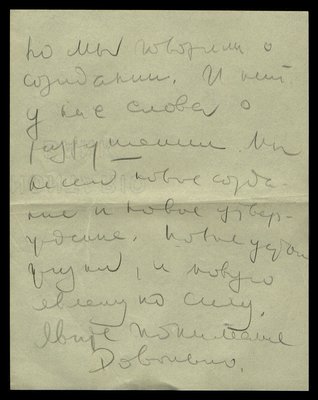 но мы говорили о
созидании. И нет
у нас слова о
разрушении. Мы
несем новое созда-
ние и новое утвер-
ждение. Новые
и новую
силу.
понимание
Довольно.